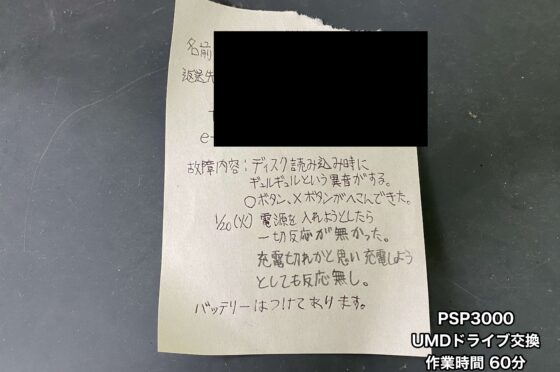 名前
返送先
e-
故障内容：ディスク読み込み時に
ギュルギュルという異音がする。
○ボタン、×ボタンがへこんできた。
1/20(火) 電源を入れようとしたら
一切反応が無かった。
充電切れかと思い充電しよう
としても反応無し。
バッテリーはつけてあります。
PSP3000
UMDドライブ交換
作業時間 60分